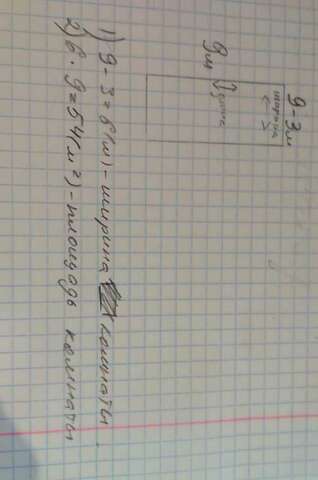 9-3м
ширина
9м
длина
1) 9-3=6(м)-ширина комнаты.
2) 6·9=54(м²)-площадь комнаты